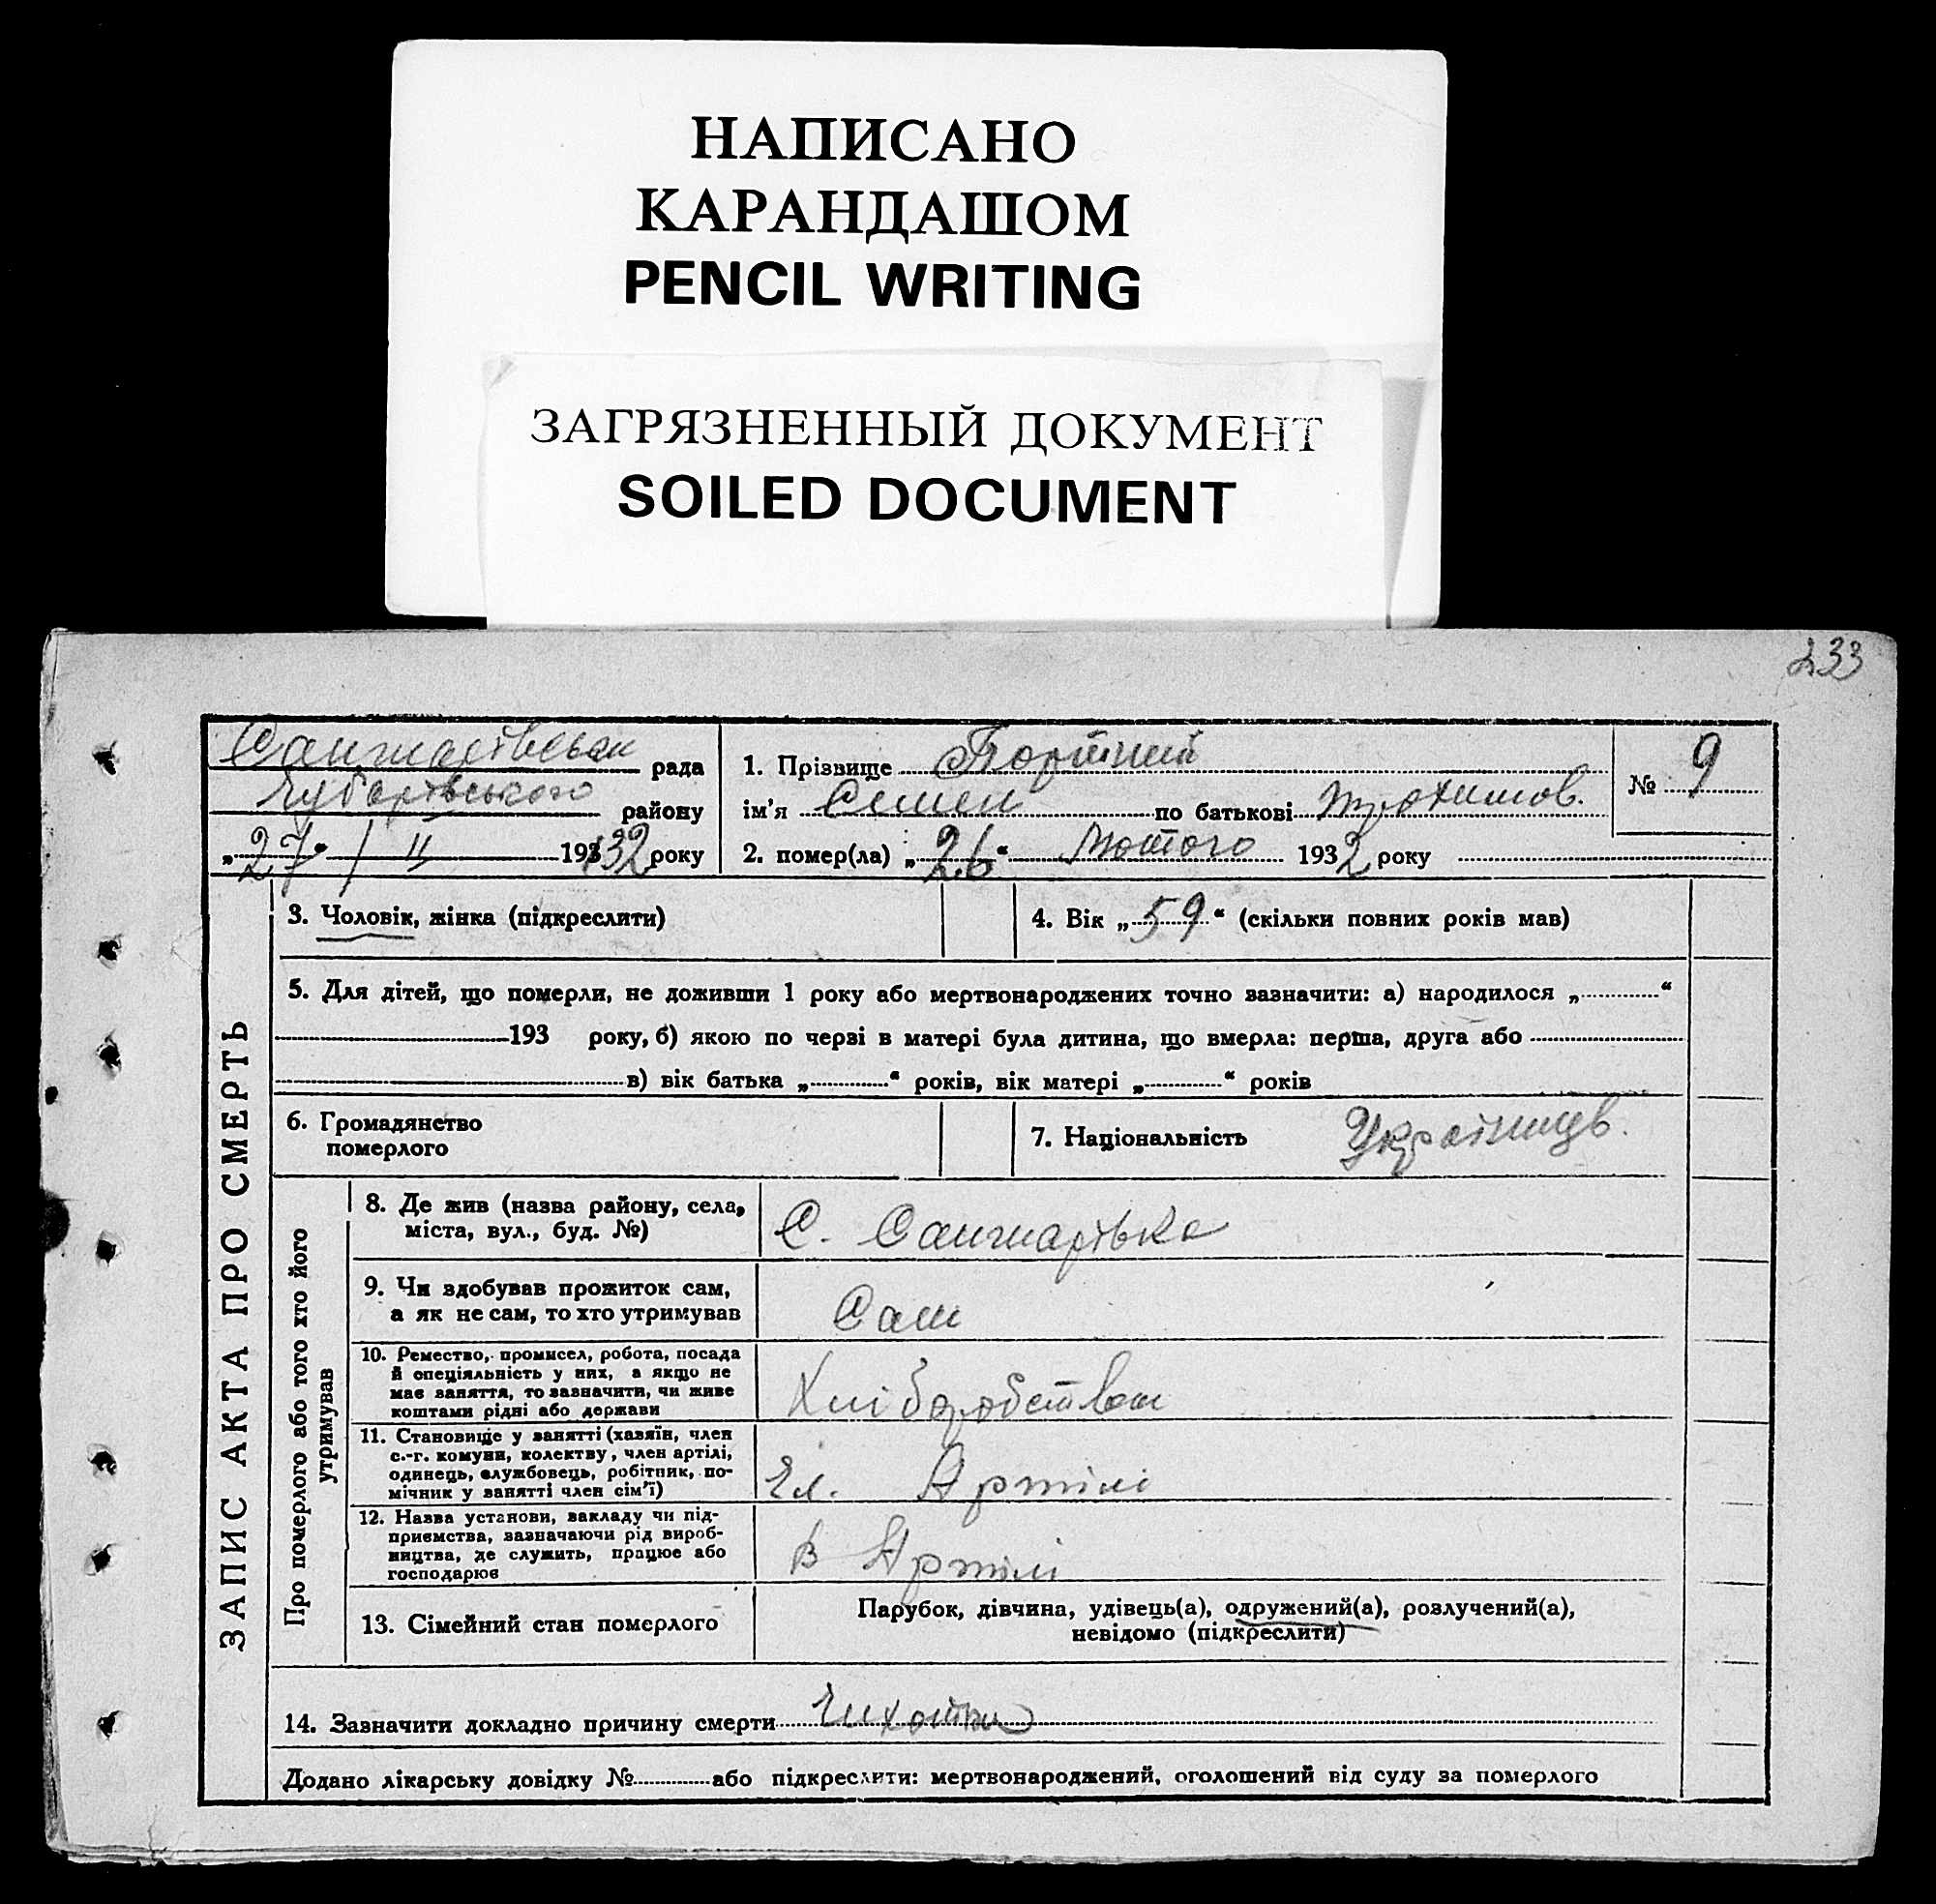 НАПИСАНО
КАРАНДАШОМ
PENCIL WRITING
ЗАГРЯЗНЕННЫЙ ДОКУМЕНТ
SOILED DOCUMENT
233
ЗАПИС АКТА ПРО СМЕРТЬ
рада
Чубарівського району
„27“ / II 1932 року
1. Прізвище
№ 9
ім'я Семен по батькові Трохимов.
2. помер(ла) „26“ Лютого 1932 року
3. Чоловік, жінка (підкреслити)
4. Вік „59“ (скільки повних років мав)
5. Для дітей, що померли, не доживши 1 року або мертвонароджених точно зазначити: а) народилося „ “
193 року, б) якою по черзі в матері була дитина, що вмерла: перша, друга або
в) вік батька „ “ років, вік матері „ “ років
6. Громадянство
померлого
7. Національність Українцъ.
Про померлого або того хто його
утримував
8. Де жив (назва району, села,
міста, вул., буд. №)
С. Санжарівка
9. Чи здобував прожиток сам,
а як не сам, то хто утримував
Сам
10. Ремество, промисел, робота, посада
й спеціяльність у них, а якщо не
має заняття, то зазначити, чи живе
коштами рідні або держави
Хліборобством
11. Становище у занятті (хазяїн, член
с.-г. комуни, колектву, член артілі,
одинець, службовець, робітник, по-
мічник у занятті член сім'ї)
Чл. Артілі
12. Назва установи, закладу чи під-
приємства, зазначаючи рід вироб-
ництва, де служить, працює або
господарює
В Артілі
13. Сімейний стан померлого
Парубок, дівчина, удівець(а), одружений(а), розлучений(а),
невідомо (підкреслити)
14. Зазначити докладно причину смерти
Додано лікарську довідку № або підкреслити: мертвонароджений, оголошений від суду за померлого